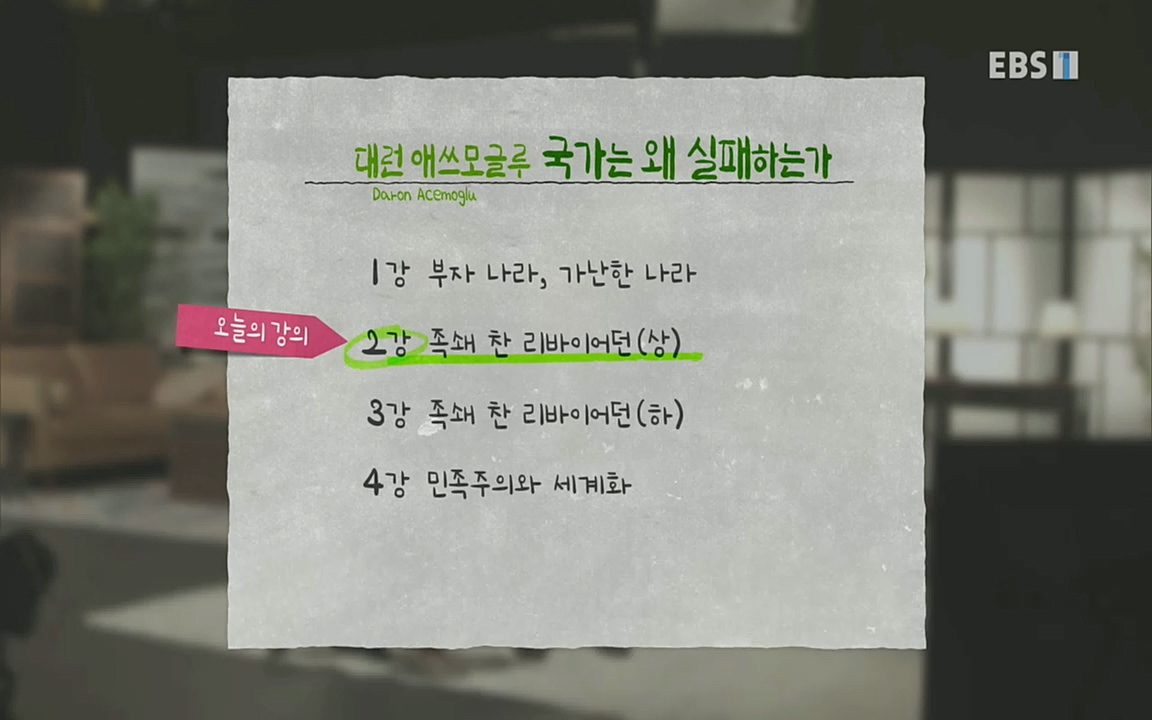 EBS 1
대런 애쓰모글루 국가는 왜 실패하는가
Daron Acemoglu
1강 부자 나라, 가난한 나라
오늘의 강의
2강 족쇄 찬 리바이어던(상)
3강 족쇄 찬 리바이어던(하)
4강 민족주의와 세계화